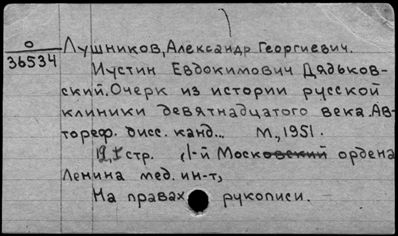 О
36534
Лушников, Александр Георгиевич.
Иустин Евдокимович Дядьков-
ский. Очерк из истории русской
клиники девятнадцатого века. Ав-
тореф. дисс. канд... М., 1951.
стр. (1-й Московский ордена
Ленина мед. ин-т,
На правах рукописи.